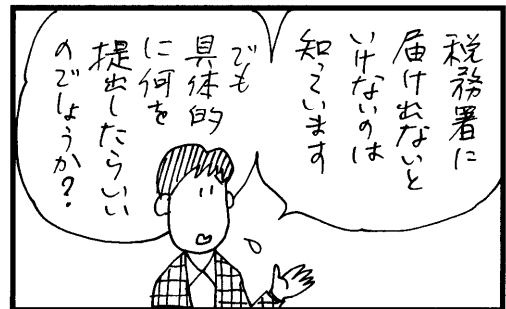 税務署に
届け出ないと
いけないのは
知っています
でも
具体的
に何を
提出したらいい
のでしょうか?